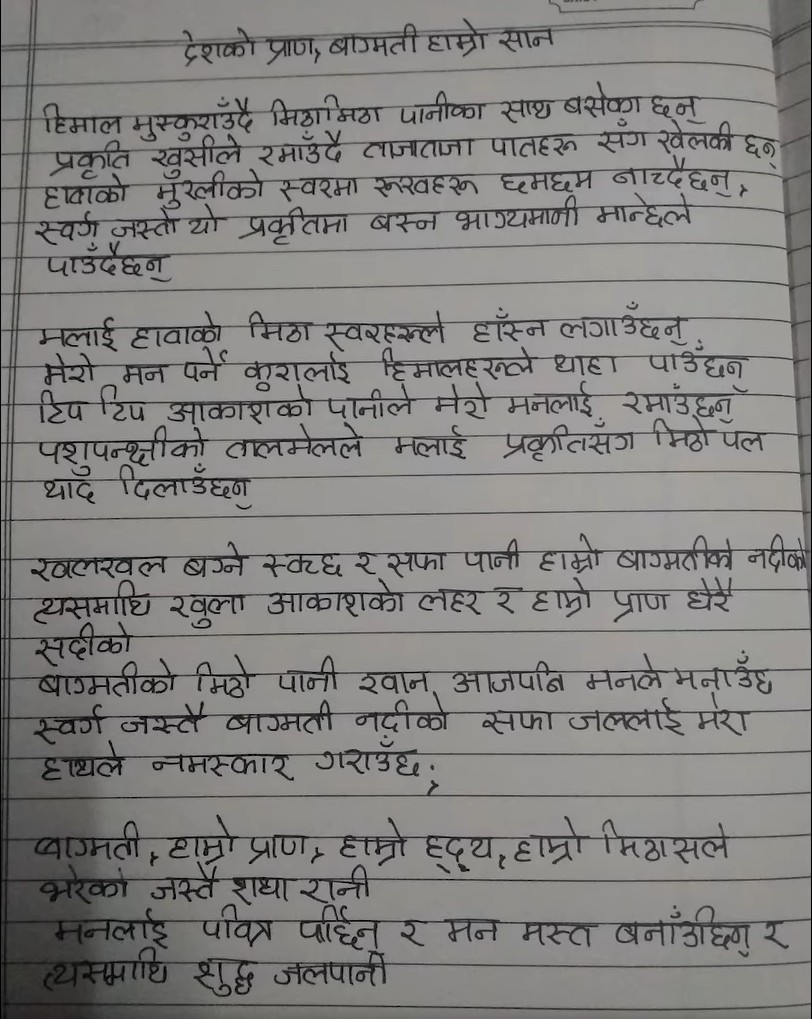 देशको प्राण, बाग्मती हाम्रो सान
हिमाल मुस्कुराउँदै मिठामिठा पानीका साथ बसेका छन्
प्रकृति खुसीले रमाउँदै ताजाताजा पातहरू सँग खेलकी छन्
हावाको मुरलीको स्वरमा रूखहरू छमछम नाच्दैछन्,
स्वर्ग जस्तो यो प्रकृतिमा बस्न भाग्यमानी मान्छेले
पाउँदैछन्
मलाई हावाको मिठा स्वरहरूले हाँस्न लगाउँछन्
मेरो मन पर्ने कुरालाई हिमालहरूले थाहा पाउँछन्
टिप टिप आकाशको पानीले मेरो मनलाई रमाउँछन्
पशुपन्क्षीको तालमेलले मलाई प्रकृतिसँग मिठो पल
याद दिलाउँछन्
खलखल बग्ने स्वच्छ र सफा पानी हाम्रो बाग्मतीको नदीको
त्यसमाथि खुला आकाशको लहर र हाम्रो प्राण धेरै
सदीको
बाग्मतीको मिठो पानी खान आजपनि मनले मनाउँछ
स्वर्ग जस्तै बाग्मती नदीको सफा जललाई मेरा
हाथले नमस्कार गराउँछ;
बाग्मती, हाम्रो प्राण, हाम्रो हृदय, हाम्रो मिठासले
भरेको जस्तै राधा रानी
मनलाई पवित्र पार्छिन् र मन मस्त बनाउँछिन् र
त्यसमाथि शुद्ध जलपानी